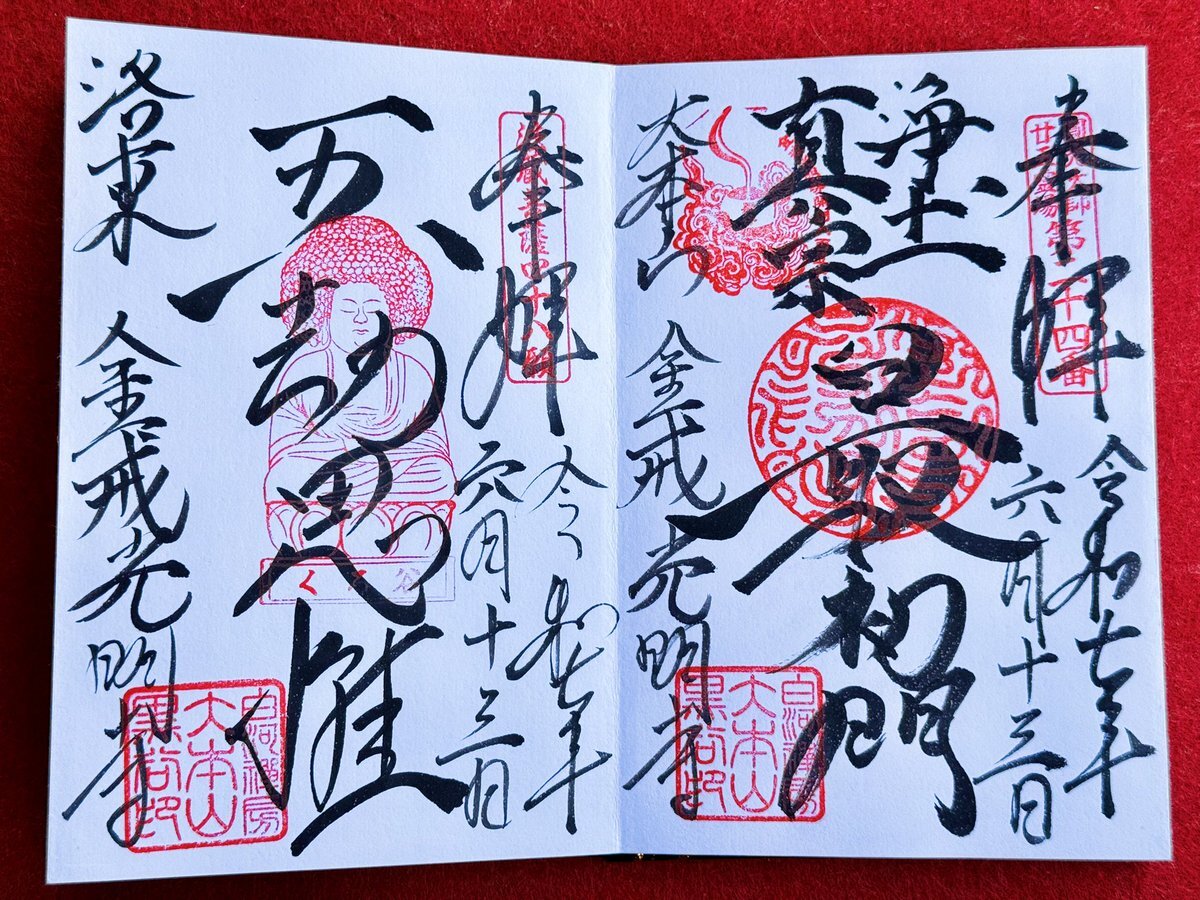 奉拝
令和七年
六月十三日
第二十四番
浄土
真宗
最初門
大本山
金戒光明寺
白河禅房
大本山
黒谷印
奉拝
令和七年
六月十三日
五劫思惟
洛東
金戒光明寺
白河禅房
大本山
黒谷印